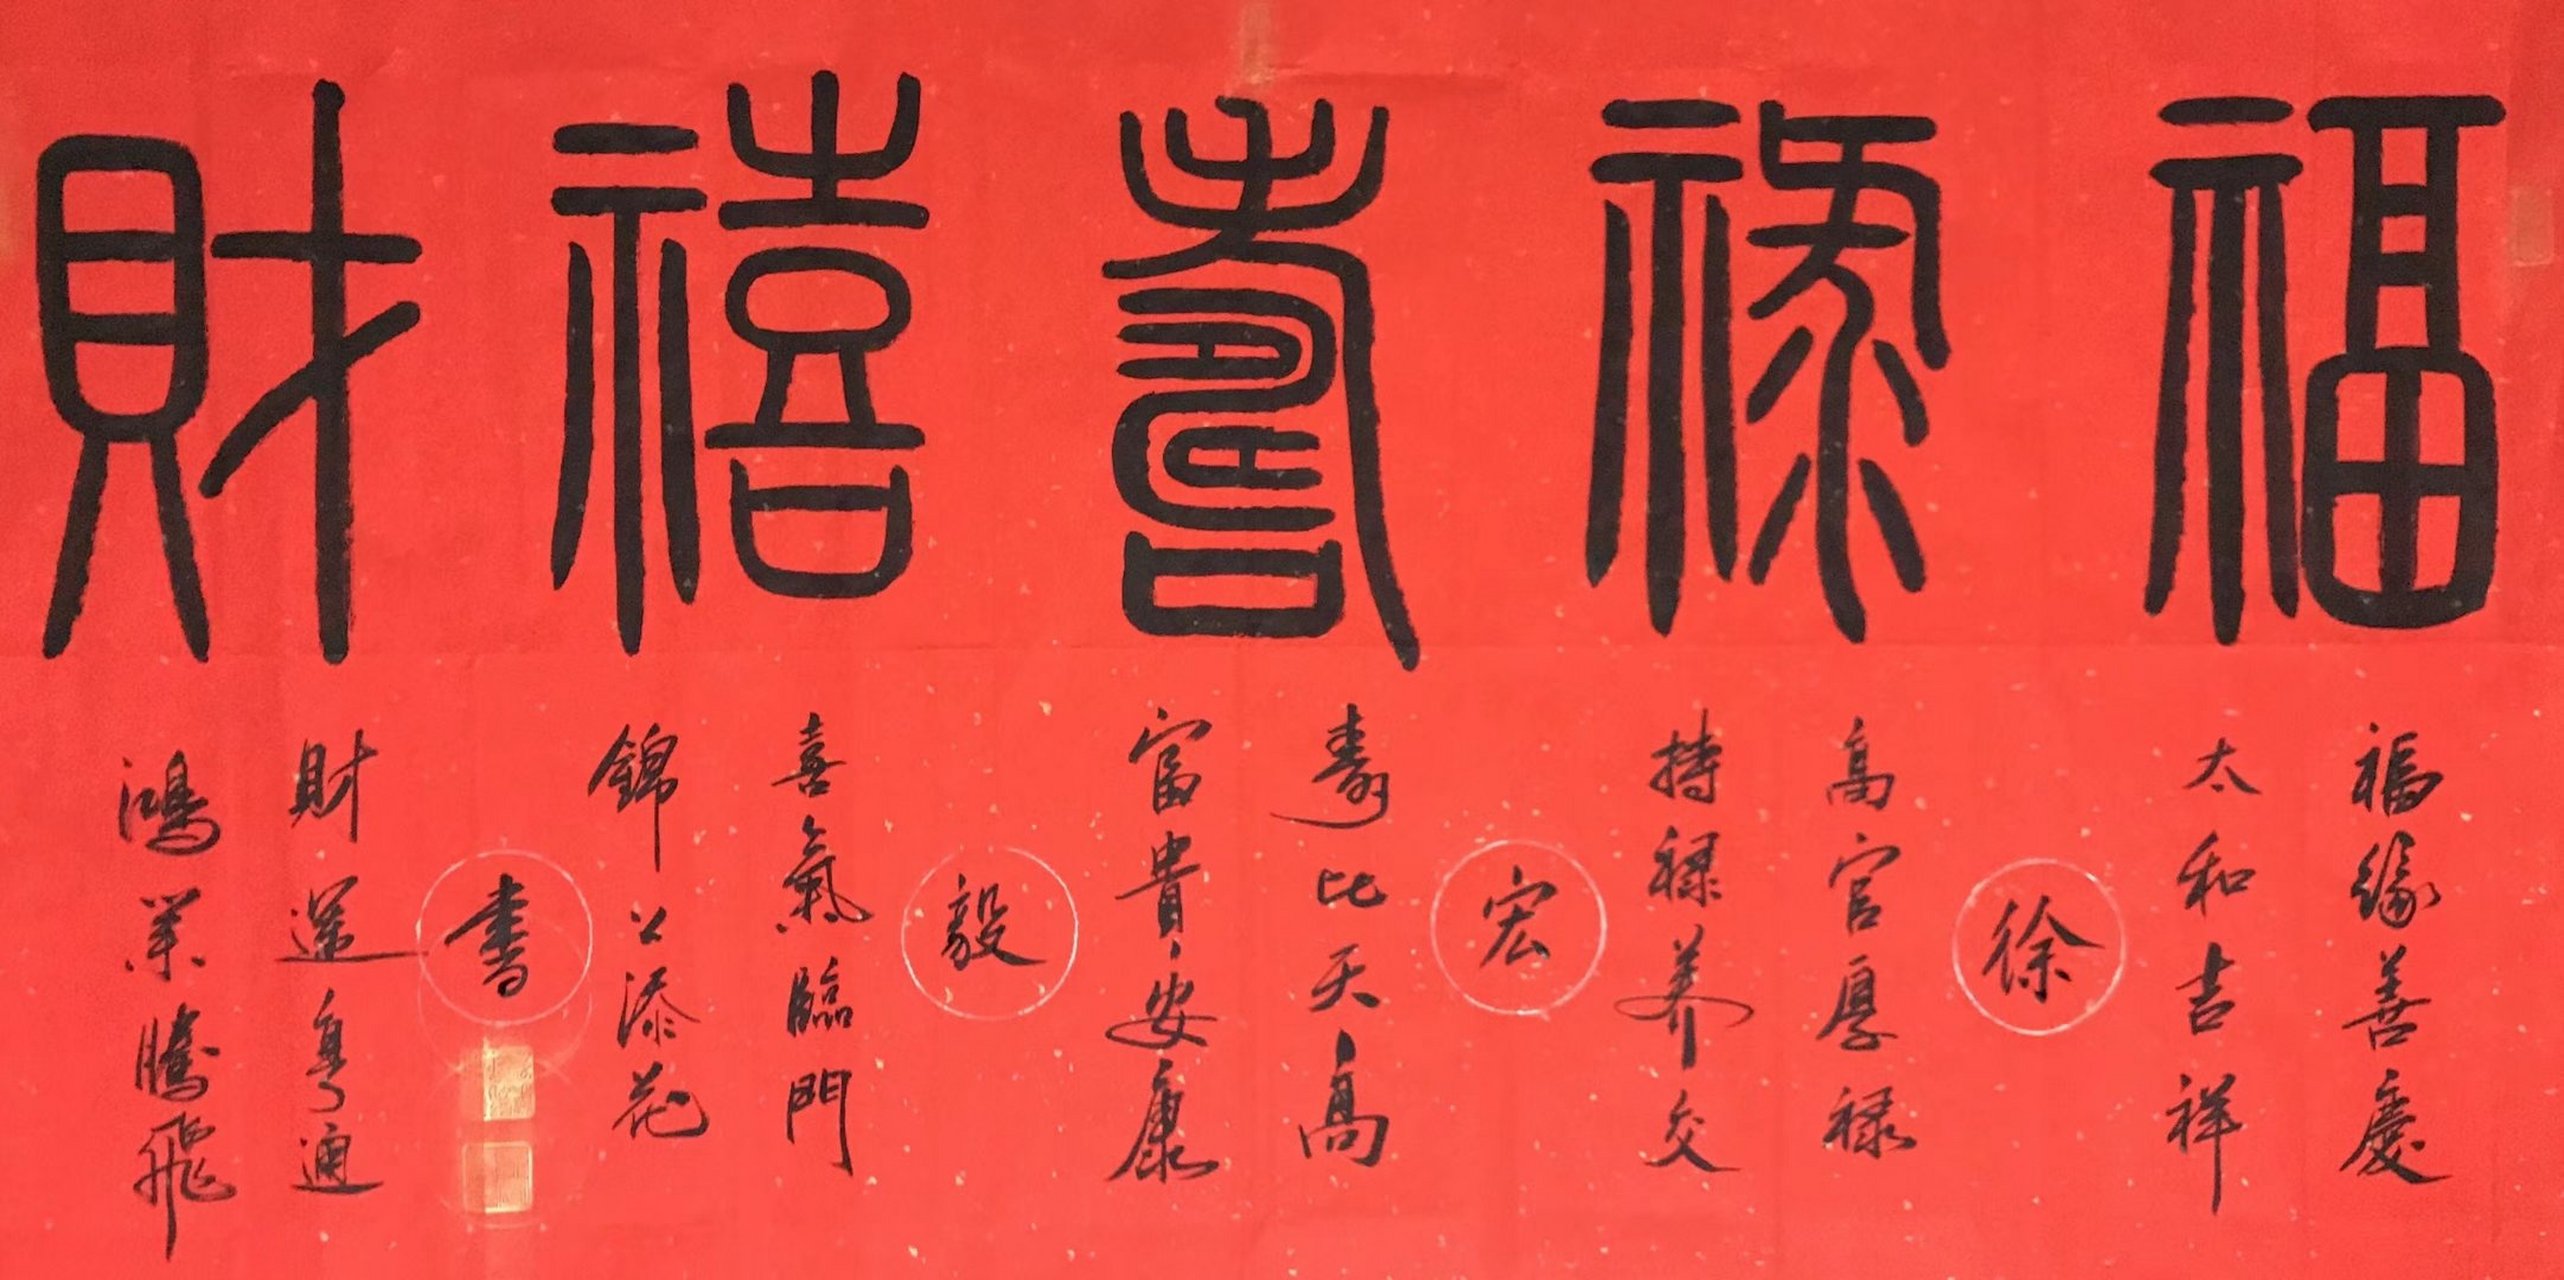 福禄壽禧財
福緣善慶
太和吉祥
徐
高官厚禄
持禄养交
宏
壽比天高
富貴安康
毅
喜氣臨門
錦上添花
書
財運亨通
鴻業騰飛